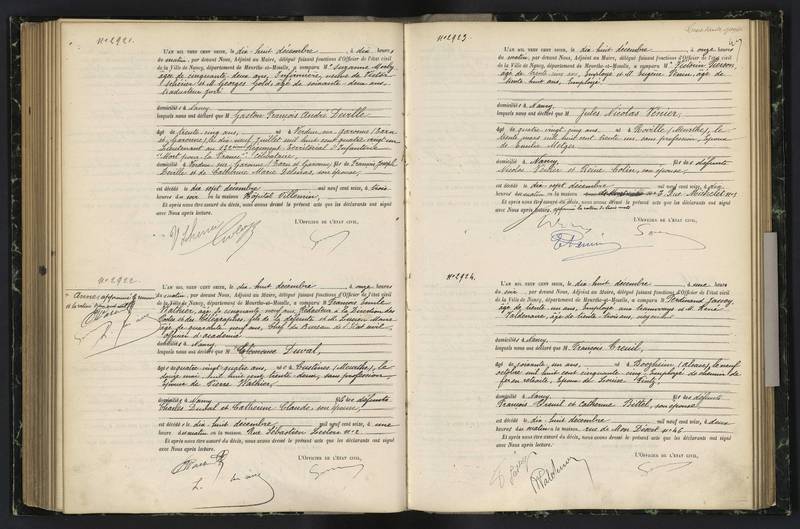 N° 2921.
L'AN MIL NEUF CENT SEIZE, le dix-huit décembre, à dix heures
du matin, par devant Nous, Adjoint au Maire, délégué faisant fonctions d'Officier de l'état civil
de la Ville de Nancy, département de Meurthe-et-Moselle, a comparu M Suzanne
âgée de cinquante deux ans, Infirmière, veuve de Victor
Scherrer et M. Georges Gold, âgé de soixante-deux ans,
traducteur juré
domiciliés à Nancy
lesquels nous ont déclaré que M Gaston François André Deville
âgé de trente cinq ans, né à Verdun-sur-Garonne (Tarn
et Garonne), le dix-neuf juillet mil huit cent quatre vingt un
Lieutenant au Régiment Territorial d'Infanterie
"Mort pour la France" Célibataire
domicilié à Verdun-sur-Garonne (Tarn et Garonne) fils de François Joseph
Deville et de Catherine Marie Delmas, son épouse,
est décédé le dix-sept décembre mil neuf cent seize, à trois
heures du soir en la maison Hôpital Villemin,
Et après nous être assuré du décès, nous avons dressé le présent acte que les déclarants ont signé
avec Nous après lecture.
L'OFFICIER DE L'ÉTAT CIVIL,
N° 2922
L'AN MIL NEUF CENT SEIZE, le dix-huit décembre, à onze heures
du matin, par devant Nous, Adjoint au Maire, délégué faisant fonctions d'Officier de l'état civil
de la Ville de Nancy, département de Meurthe-et-Moselle, a comparu M François Emile
Walhier, âgé de cinquante neuf ans, Rédacteur à la Direction des
Postes et Télégraphes, fils de la défunte et M. Lucien Marie
âgé de quarante neuf ans, Chef de Bureau de l'Etat civil,
officier d'académie
domiciliés à Nancy
lesquels nous ont déclaré que M Clémence Duval,
âgée quatre vingt quatre ans, née à Custines (Meurthe), le
douze mai mil huit cent trente deux, sans profession,
épouse de Pierre Walhier,
domiciliée à Nancy fille de défunts
Charles Duval et Catherine Claude, son épouse,
est décédée le dix-huit décembre mil neuf cent seize, à une
heure du matin en la maison Rue Sébastien Leclerc n° 2
Et après nous être assuré du décès, nous avons dressé le présent acte que les déclarants ont signé
avec Nous après lecture.
L'OFFICIER DE L'ÉTAT CIVIL,
N° 2923.
L'AN MIL NEUF CENT SEIZE, le dix-huit décembre, à onze heures
du matin, par devant Nous, Adjoint au Maire, délégué faisant fonctions d'Officier de l'état civil
de la Ville de Nancy, département de Meurthe-et-Moselle, a comparu M Victorin
âgé de trente six ans, Employé et M. Eugène Penin, âgé de
trente huit ans, Employé,
domiciliés à Nancy
lesquels nous ont déclaré que M Jules Nicolas
âgé de quatre vingt cinq ans né à Roville (Meurthe), le
trente mars mil huit cent trente un, sans profession, époux
de Emilie Metzger
domicilié à Nancy, fils de défunts
Nicolas et Reine Colin, son épouse,
est décédé le dix-sept décembre mil neuf cent seize, à dix
heures du matin en la maison Rue Michelet n° 3
Et après nous être assuré du décès, nous avons dressé le présent acte que les déclarants ont signé
avec Nous après lecture,
L'OFFICIER DE L'ÉTAT CIVIL,
N° 2924.
L'AN MIL NEUF CENT SEIZE, le dix-huit décembre à une heure
du soir, par devant Nous, Adjoint au Maire, délégué faisant fonctions d'Officier de l'état civil
de la Ville de Nancy, département de Meurthe-et-Moselle, a comparu M Ferdinand
âgé de trente un ans, Employé aux tramways et M. René
Valdenaire, âgé de trente trois ans,
domiciliés à Nancy.
lesquels nous ont déclaré que M François Creuil,
âgé de soixante un ans, né à (Alsace) le neuf
octobre mil huit cent cinquante cinq, Employé de chemin de
fer en retraite, époux de Louise
domicilié à Nancy fils de défunts
François Creuil et Catherine Bittel, son épouse,
est décédé le dix-huit décembre mil neuf cent seize, à deux
heures du matin en la maison, rue de Mon Désert n° 46
Et après nous être assuré du décès, nous avons dressé le présent acte que les déclarants ont signé
avec Nous après lecture.
L'OFFICIER DE L'ÉTAT CIVIL,